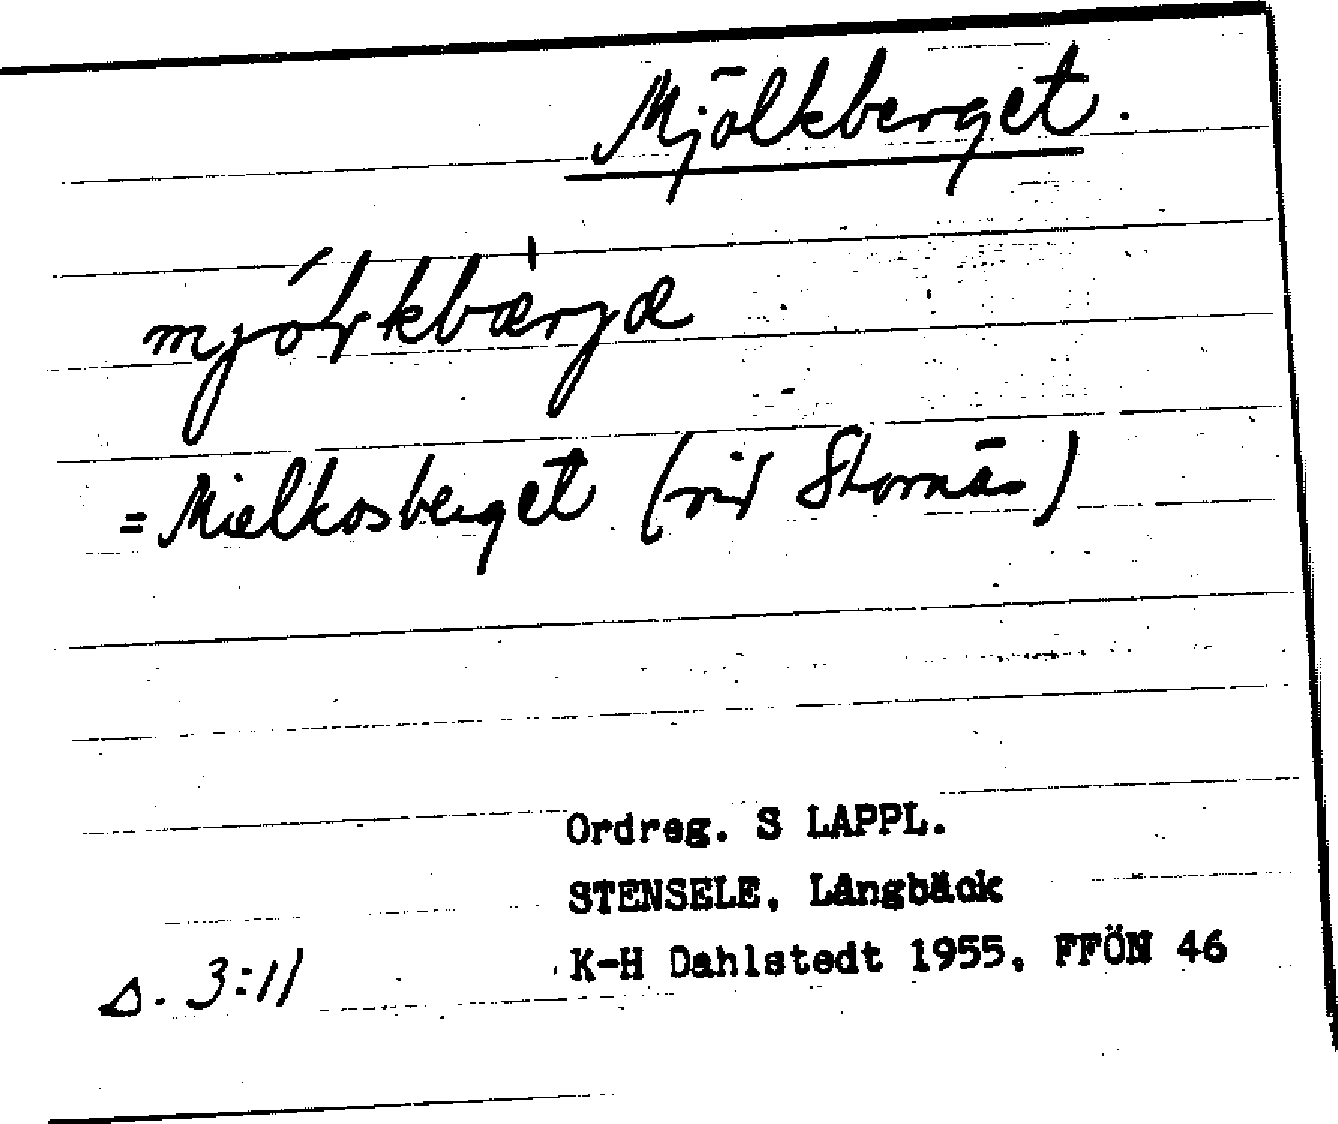 Mjölkberget.
mjólkbærjæ
= Mielkosberget (vid Stornäs)
Ordreg. S LAPPL.
STENSELE, Långbäck
K-H Dahlstedt 1955. FFÖN 46
s. 3:11